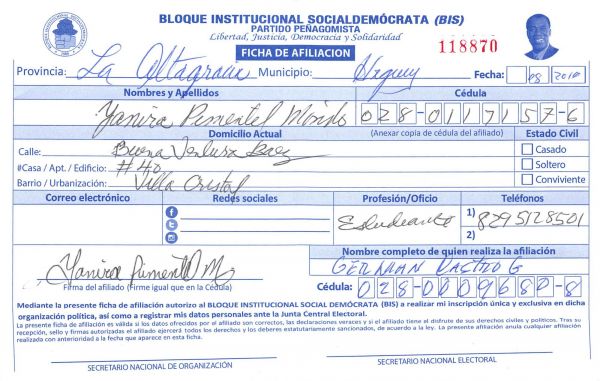 BLOQUE INSTITUCIONAL SOCIALDEMÓCRATA (BIS)
PARTIDO PEÑAGOMISTA
Libertad, Justicia, Democracia y Solidaridad
FICHA DE AFILIACION
118870
Provincia: La Altagracia Municipio: Higuey Fecha: 08 2010
Nombres y Apellidos Cédula
Yanira Pimentel 028-0117157-6
Domicilio Actual (Anexar copia de cédula del afiliado) Estado Civil
Calle: Buena Baez Casado
#Casa / Apt. / Edificio: #40 Soltero
Barrio / Urbanización: Villa Cristal Conviviente
Correo electrónico Redes sociales Profesión/Oficio Teléfonos
Estudiante 1) 8295128501
2)
Nombre completo de quien realiza la afiliación
Yanira Pimentel M. GERMAN CASTRO G
Firma del afiliado (Firme igual que en la Cédula) Cédula: 028-0009682-8
Mediante la presente ficha de afiliación autorizo al BLOQUE INSTITUCIONAL SOCIAL DEMÓCRATA (BIS) a realizar mi inscripción única y exclusiva en dicha
organización política, así como a registrar mis datos personales ante la Junta Central Electoral.
La presente ficha de afiliación es válida si los datos ofrecidos por el afiliado son correctos, las declaraciones veraces y si el afiliado tiene el disfrute de sus derechos civiles y políticos. Tras su
recepción, sello y firmas autorizadas el afiliado ejercerá todos los derechos y los deberes estatutariamente sancionados, de acuerdo a la ley. La presente afiliación anula cualquier afiliación
realizada con anterioridad a la fecha que aparece en esta ficha.
SECRETARIO NACIONAL DE ORGANIZACIÓN SECRETARIO NACIONAL ELECTORAL